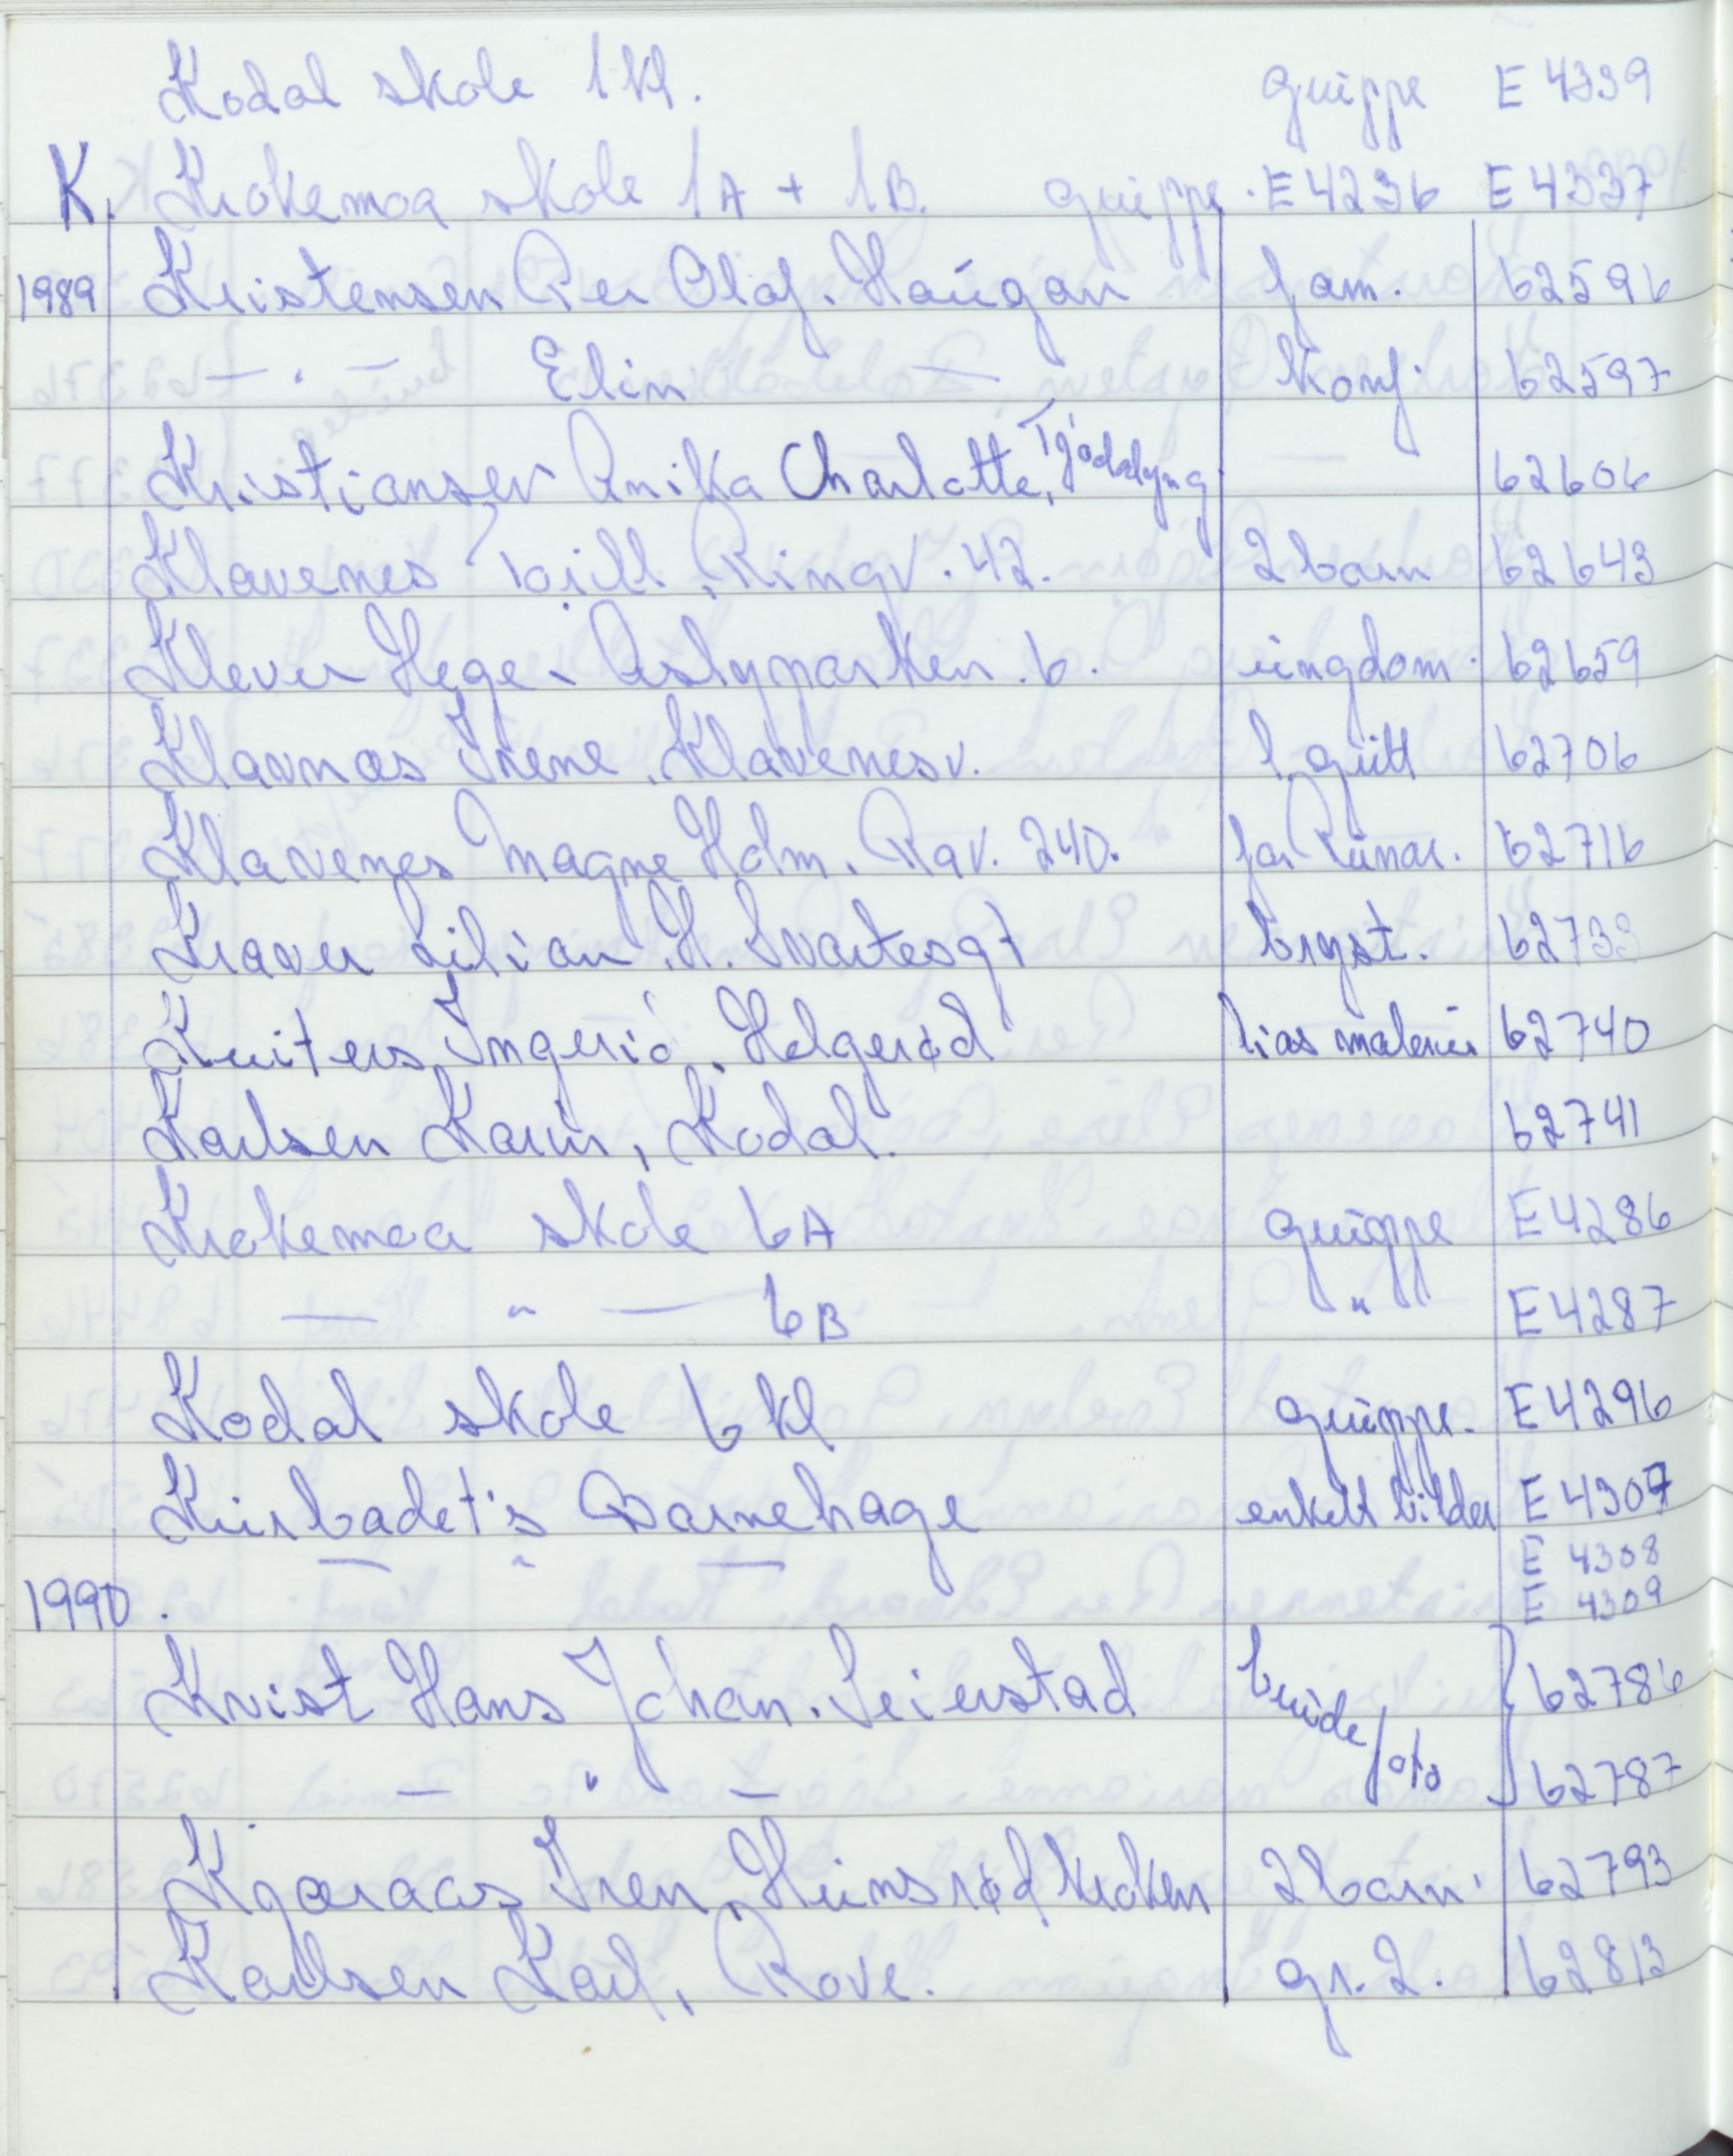 Kodal skole 1 kl. gruppe E 4339
K. Krokemoa skole 1A + 1B. gruppe. E4236 E 4337
1989 Kristensen Per Olaf. Haugan fam. 62596
— " — Elin — konf. 62597
Kristiansen Anika Charlotte, Tjødalyng — 62606
Klavenes Torill, Ringv. 42. 2 barn 62643
Klever Hege. Åslyparken. 6. ungdom. 62659
Klavnæs Irene, Klavenesv. 1 gutt 62706
Klavenes Magne Holm. Rav. 240. for Runar. 62716
Kraver Lilian. H. Svartesgt bryst. 62733
Kruiters Ingerid, Helgerød 62740
Karlsen Karin, Kodal. 62741
Krokemoa skole 6A gruppe E4286
— " — 6B " E4287
Kodal skole 6 kl gruppe. E4296
Kurbadet's Barnehage enkelt bilder E 4307
— " — E 4308
1990. E 4309
Kvist Hans Johan. Seierstad brude 62786
— " — foto 62787
Kjæraas Iren, Heimsrødkroken 2 barn. 62793
Karlsen Karl, Rove. gr. 2. 62813